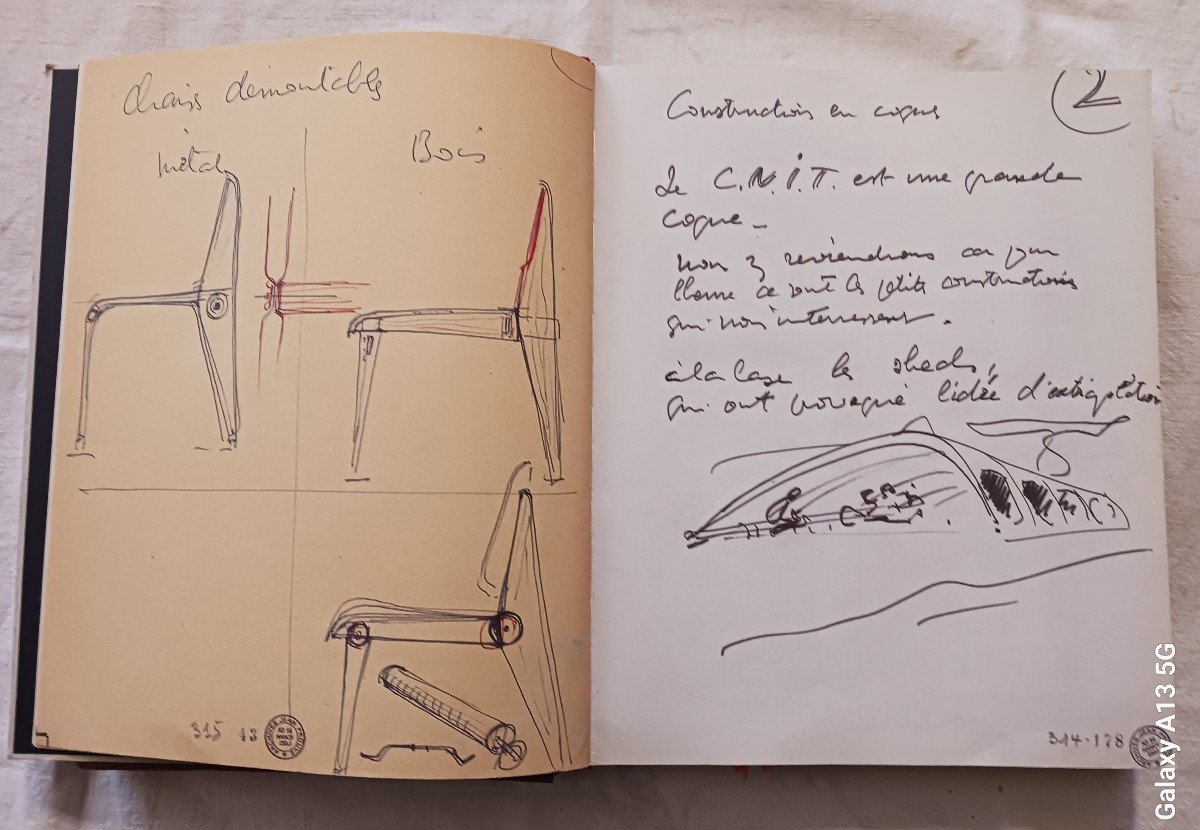 Chaises démontables
métal
Bois
315 13
2
Construction en coque
Le C.N.I.T. est une grande
coque -
nous y reviendrons car pour
l'heure ce sont les petites constructions
qui nous interressent.
à la base les sheds,
qui ont provoqué l'idée d'extrapolation
314-178
Galaxy A13 5G